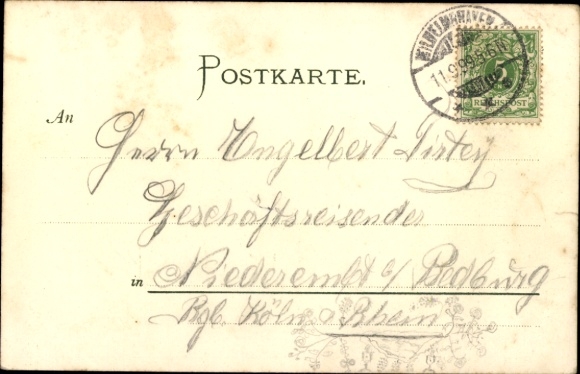 WILHELMSHAVEN
11.9.99. 5-6 N
5
REICHSPOST
POSTKARTE.
An
Herrn Engelbert
Geschäftsreisender
in Niederembt b/ Bedburg
Rgb. Köln a Rhein